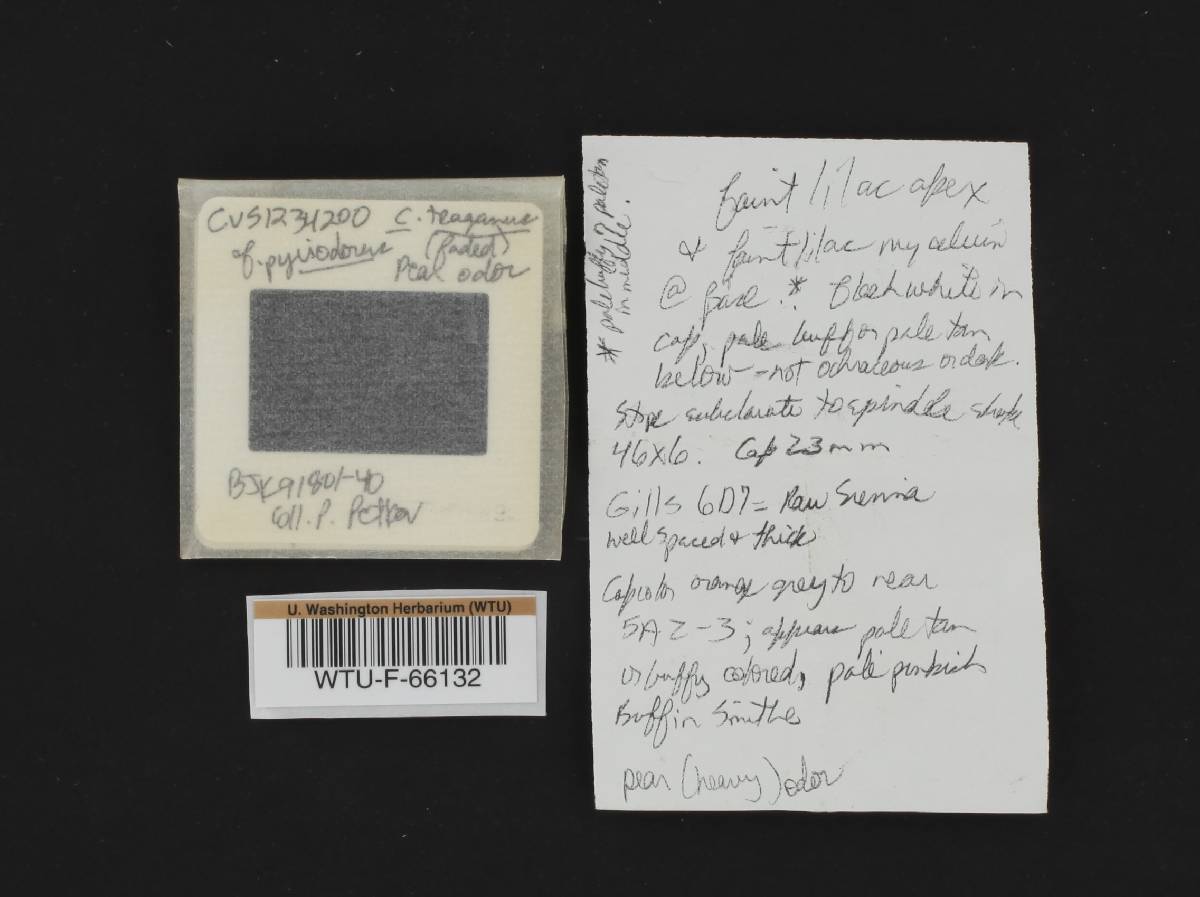 CVS1231200 C. traganus
f. pyriodorus (faded)
Pear odor
BJK91801-40
Coll. P. Petkov
U. Washington Herbarium (WTU)
WTU-F-66132
* pale buffy or pale tan
in middle.
faint lilac apex
& faint lilac mycelium
@ base.* Flesh white in
cap, pale buff or pale tan
below - not ochraceous or dark.
Stipe subclavate to spindle shape
46x6. Cap 23mm
Gills 6D7 = Raw Sienna
well spaced & thick
Cap color orange grey to near
5A2-3; appears pale tan
or buffy colored, pale pinkish
Buff in Smithe
pear (heavy) odor